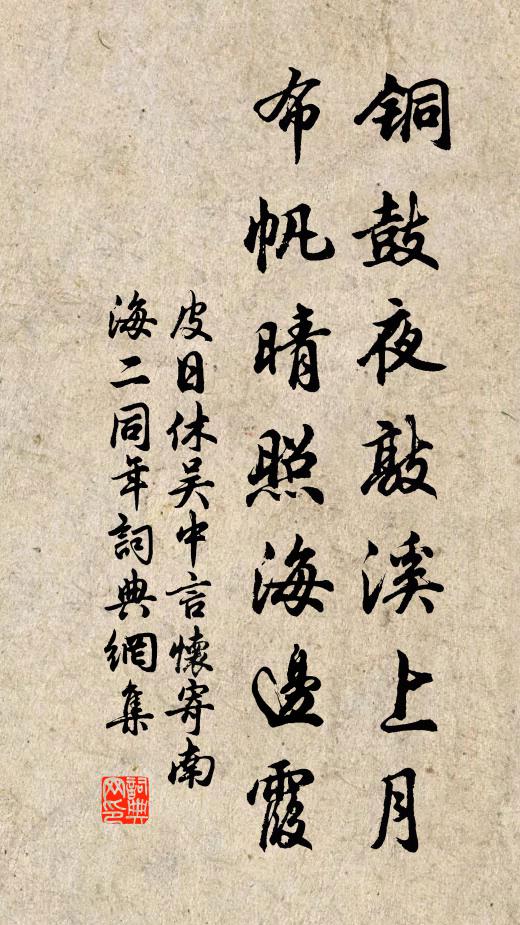 铜鼓夜敲溪上月
布帆晴照海邊霞
皮日休吴中言懷寄南
海二同年詞典網集
詞典網印